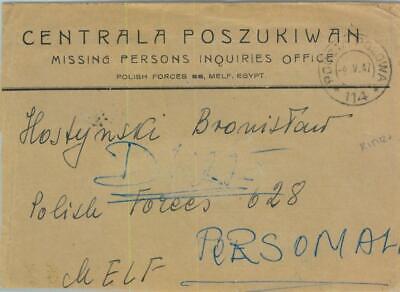 CENTRALA POSZUKIWAN
MISSING PERSONS INQUIRIES OFFICE
POLISH FORCES 88, MELF, EGYPT.
-6.V.47
114
Hostynski Bronisław
Polish Forces 628
PERSONAL
MELF